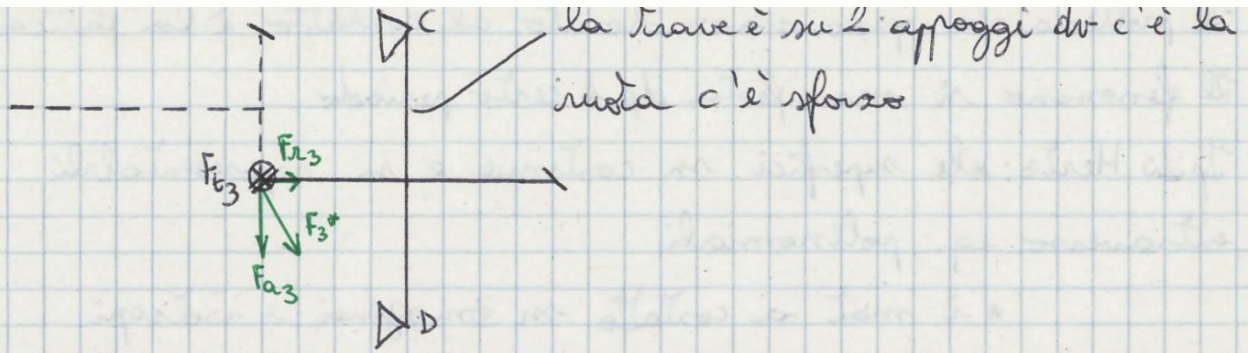 C la trave è su 2 appoggi dv c'è la
ruota c'è sforzo
Fr3
Ft3
F3*
Fa3
D